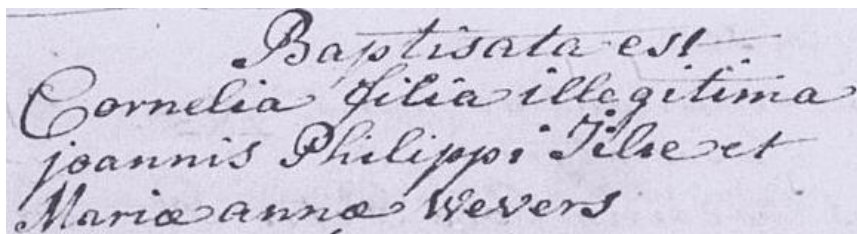 Baptisata est
Cornelia filia illegitima
joannis Philippi et
Mariæ annæ Wevers